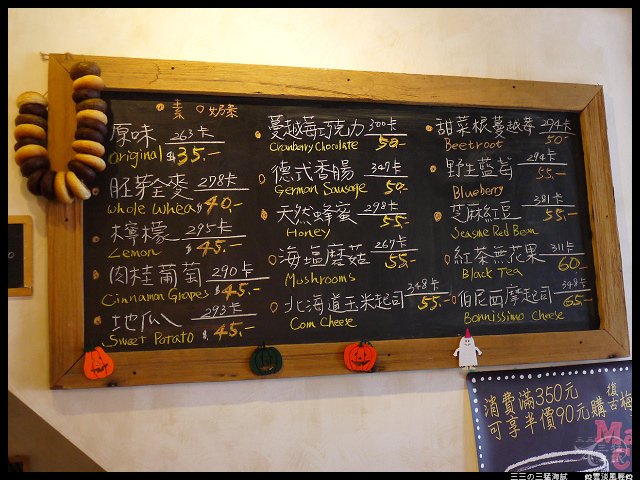 素 奶素
原味 263卡
original $35.-
胚芽全麥 278卡
whole wheat $40.-
檸檬 295卡
Lemon $45.-
肉桂葡萄 290卡
Cinnamon Grapes $45.-
地瓜 293卡
Sweet Potato $45.-
蔓越莓巧克力 300卡
Cranberry Chocolate 50.-
德式香腸 347卡
German Sausage 50.-
天然蜂蜜 298卡
Honey 55.-
海塩蘑菇 269卡
Mushrooms 55.-
北海道玉米起司 348卡
Corn Cheese 55.-
甜菜根蔓越莓 294卡
Beetroot 50.-
野生藍莓 294卡
Blueberry 55.-
芝麻紅豆 381卡
Seasme Red Bean 55.-
紅茶無花果 311卡
Black Tea 60.-
伯尼西摩起司 348卡
Bonnissimo Cheese 65.-
消費滿350元
可享半價90元購
復古梅
Ma
C
三三の三猛海賊
雲淡風輕